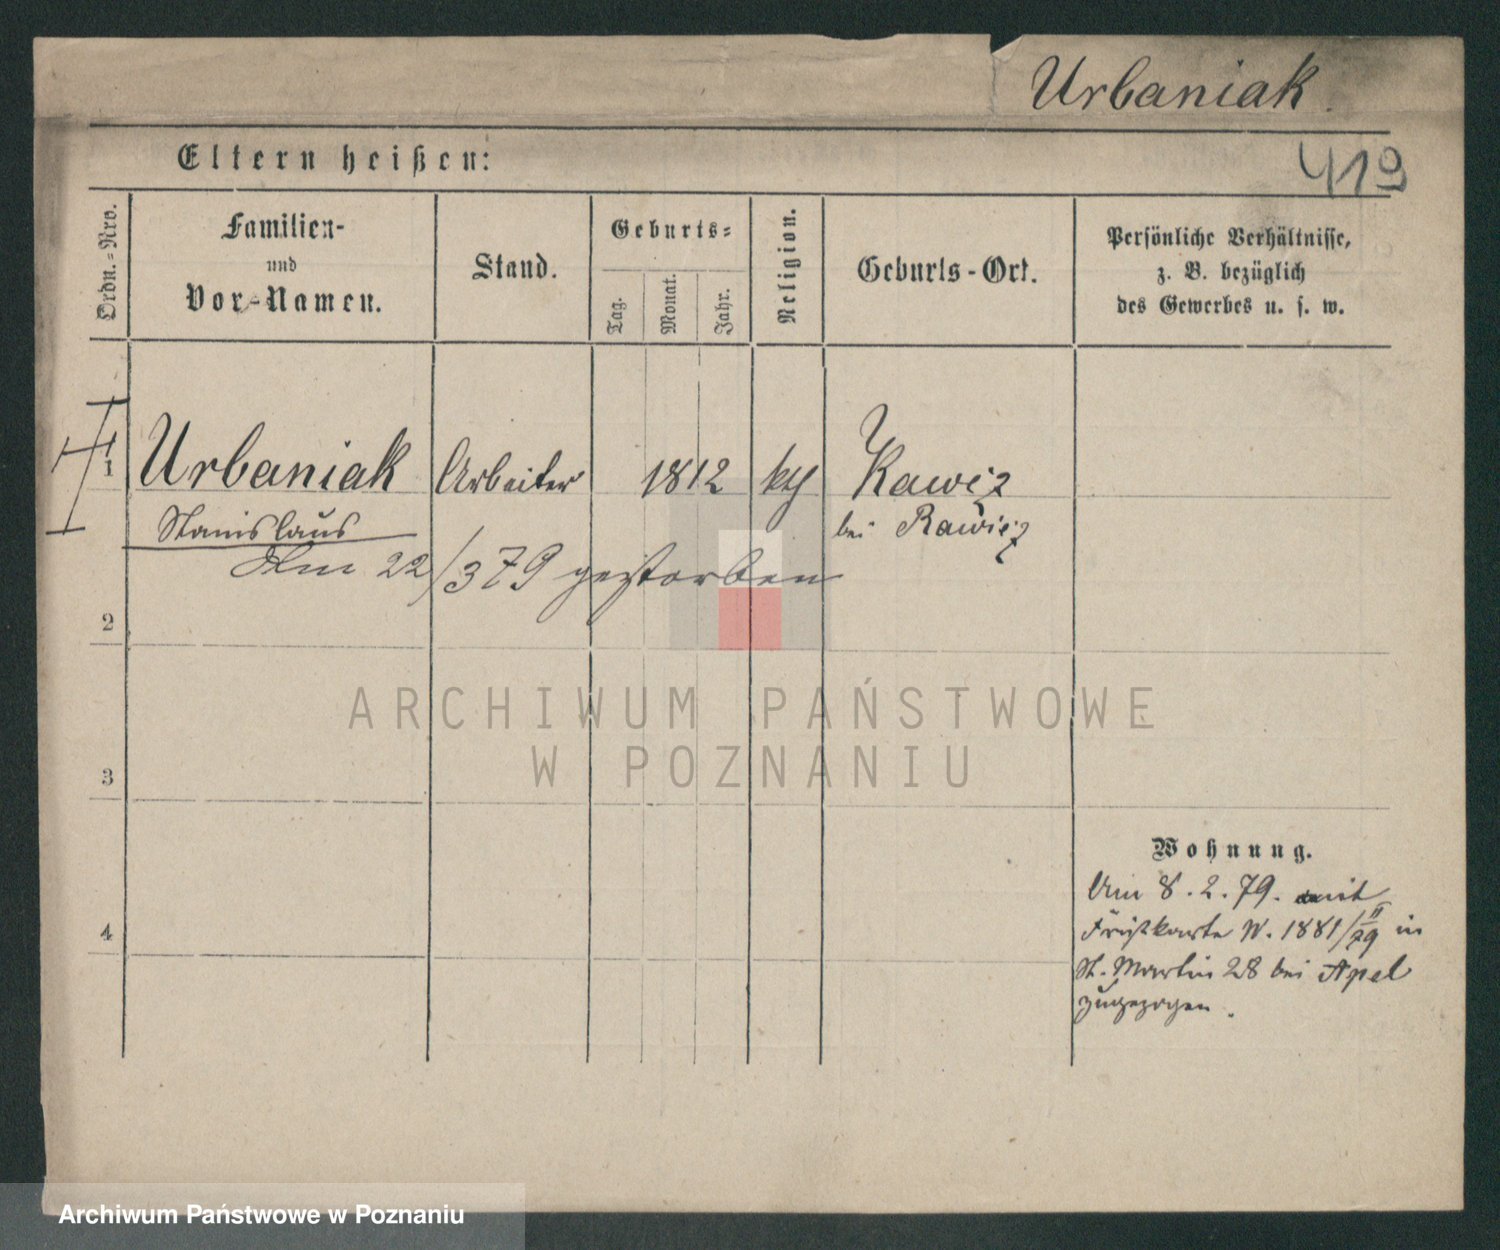 Urbaniak.
419
Eltern heißen:
Ordn.-Nro.
Familien-
und
Vor-Namen.
Stand.
Geburts-
Tag.
Monat.
Jahr.
Religion.
Geburts-Ort.
Persönliche Verhältnisse,
z. B. bezüglich
des Gewerbes u. s. w.
1
Urbaniak Arbeiter 1812
Stanislaus
Kawiz
bei Rawiez
Am 22/3 79 gestorben
2
3
4
Wohnung.
Am 8. 2. 79. mit
N. 1881/II 79 in
St. Martin 28 bei Apel
zugezogen.
ARCHIWUM PAŃSTWOWE
W POZNANIU
Archiwum Państwowe w Poznaniu